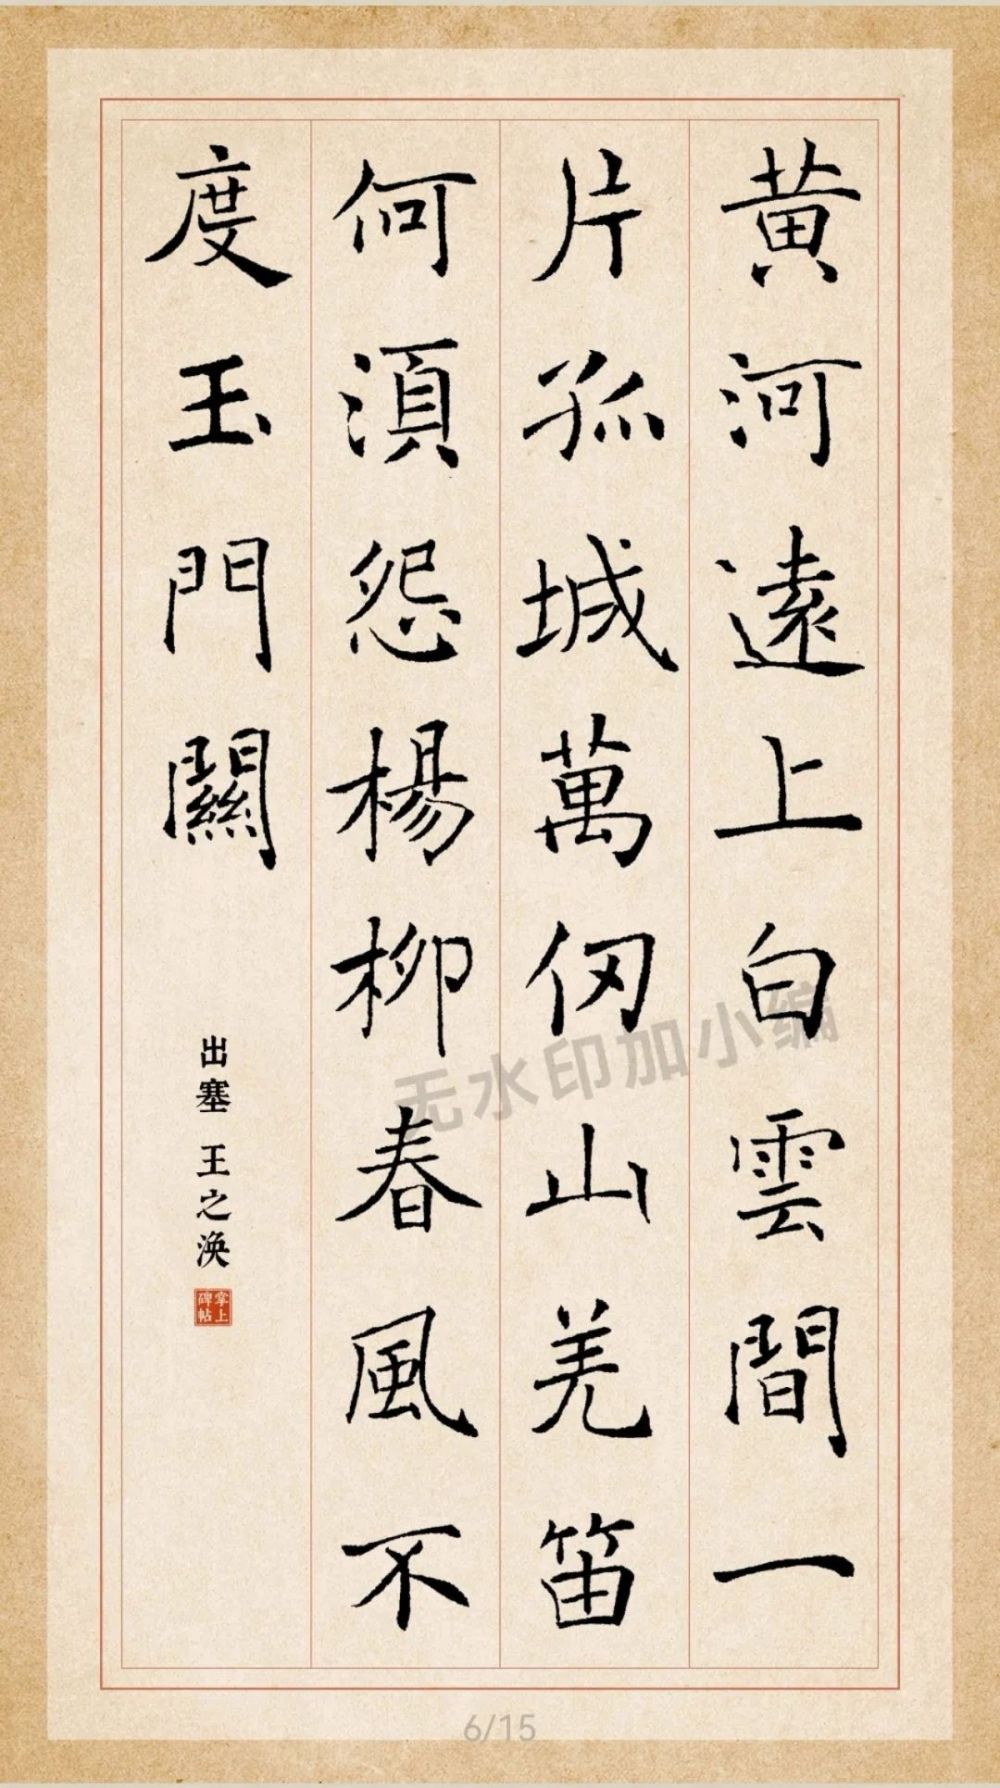 黄河遠上白雲間一
片孤城萬仞山羌笛
何湏怨楊柳春風不
度玉門關
出塞 王之渙
掌上碑帖
无水印加小编
6/15